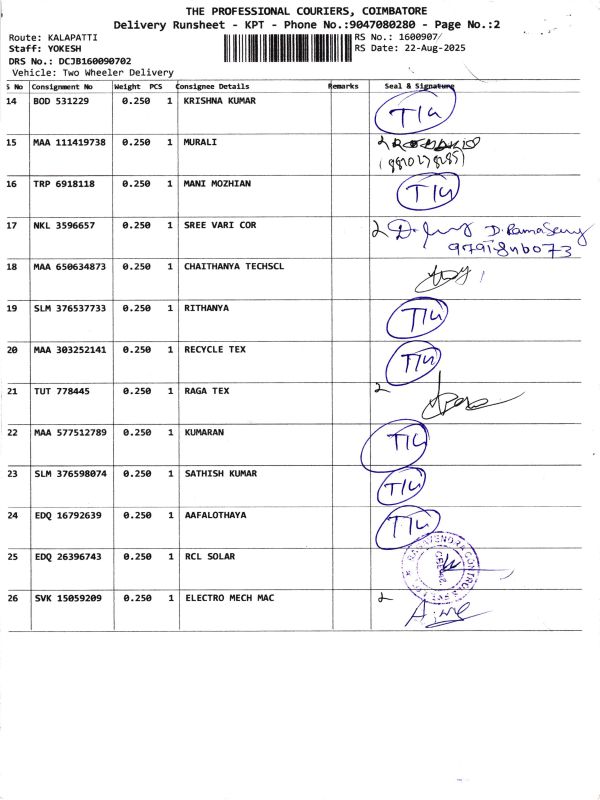 THE PROFESSIONAL COURIERS, COIMBATORE
Delivery Runsheet - KPT - Phone No.:9047080280 - Page No.:2
Route: KALAPATTI RS No.: 1600907
Staff: YOKESH RS Date: 22-Aug-2025
DRS No.: DCJB160090702
Vehicle: Two Wheeler Delivery
S No Consignment No Weight PCS Consignee Details Remarks Seal & Signature
14 BOD 531229 0.250 1 KRISHNA KUMAR T/U
15 MAA 111419738 0.250 1 MURALI
16 TRP 6918118 0.250 1 MANI MOZHIAN T/U
17 NKL 3596657 0.250 1 SREE VARI COR D.RamaSamy
9791840073
18 MAA 650634873 0.250 1 CHAITHANYA TECHSCL
19 SLM 376537733 0.250 1 RITHANYA T/U
20 MAA 303252141 0.250 1 RECYCLE TEX T/U
21 TUT 778445 0.250 1 RAGA TEX
22 MAA 577512789 0.250 1 KUMARAN T/U
23 SLM 376598074 0.250 1 SATHISH KUMAR T/U
24 EDQ 16792639 0.250 1 AAFALOTHAYA T/U
25 EDQ 26396743 0.250 1 RCL SOLAR
26 SVK 15059209 0.250 1 ELECTRO MECH MAC